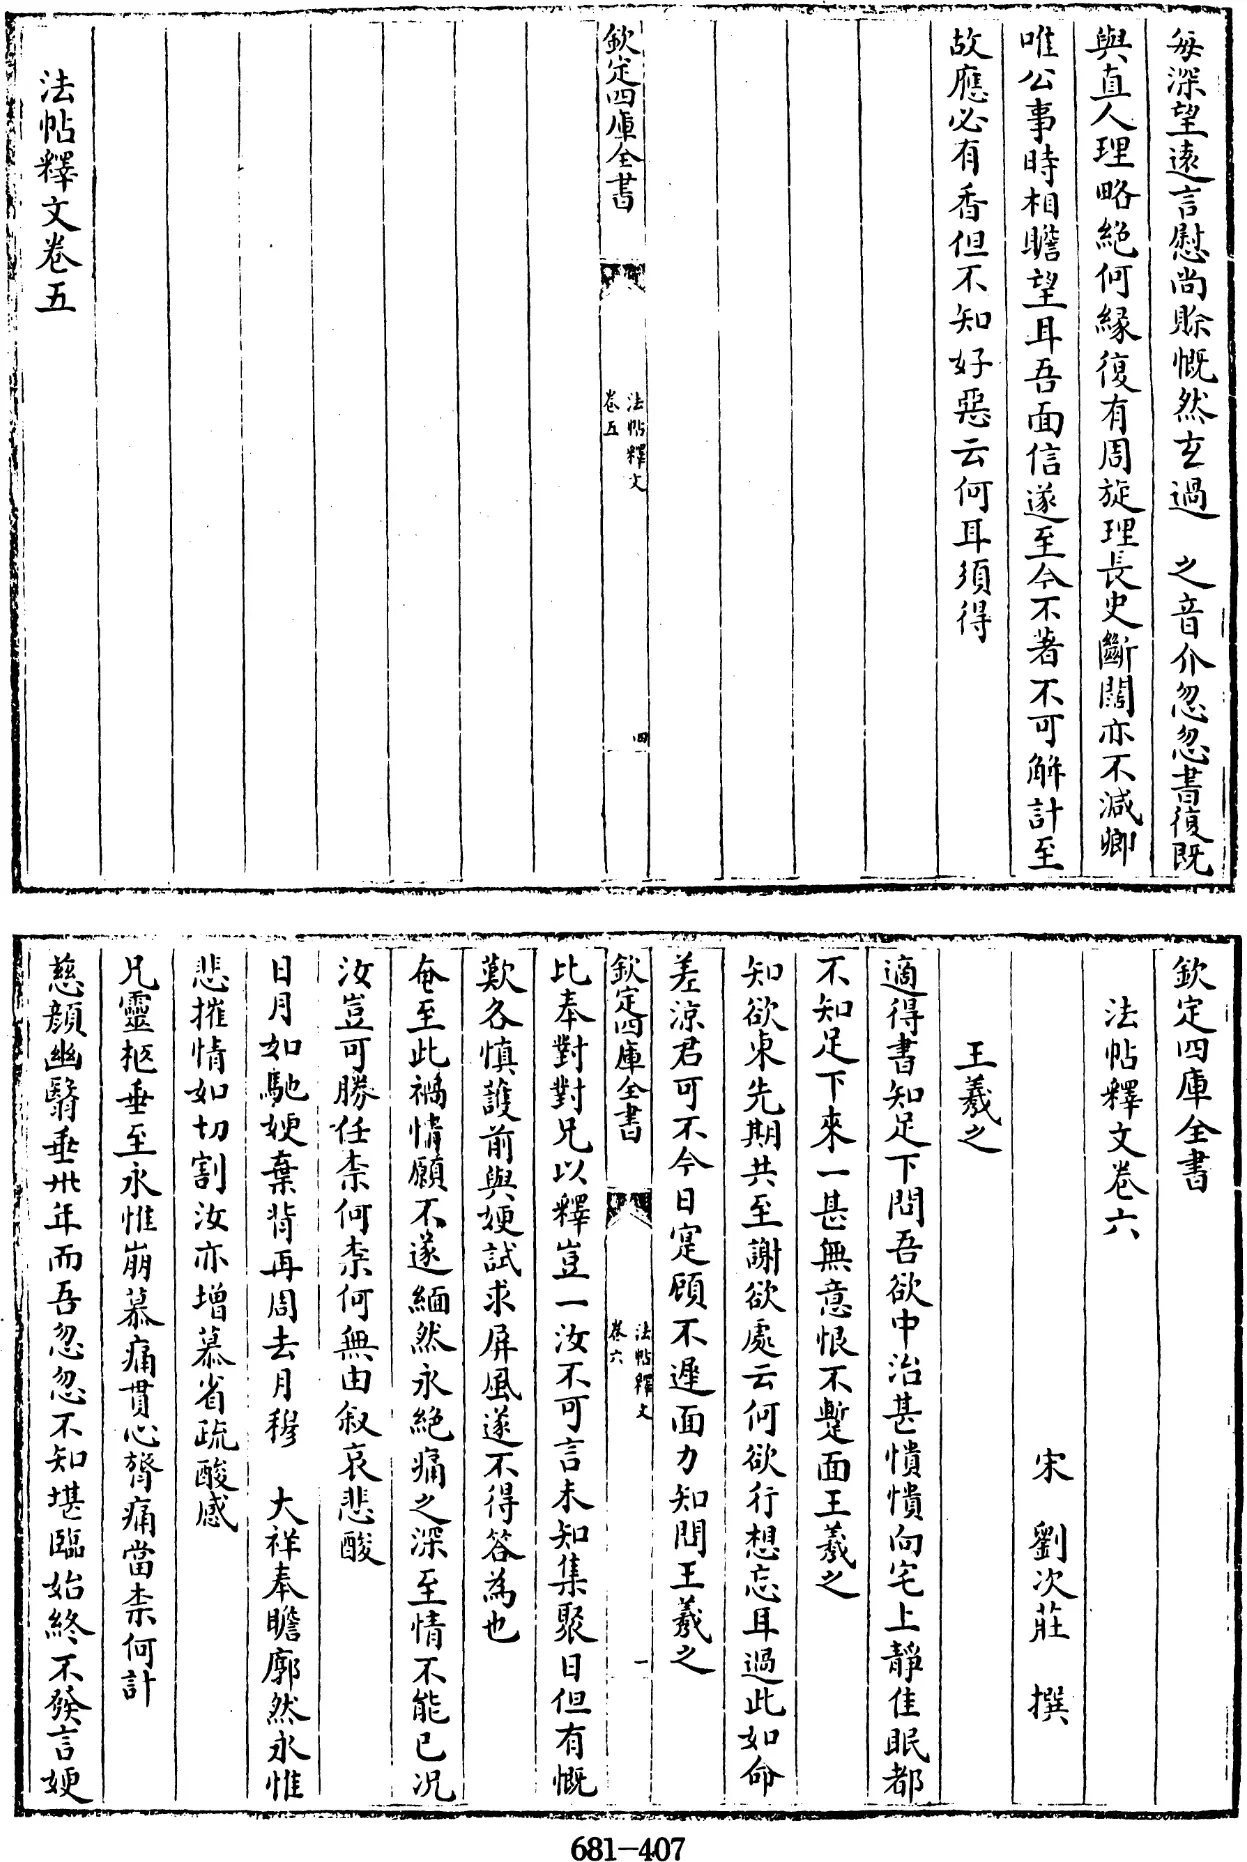 每深望遠言慰尚賒慨然玄過　之音介忽忽書復既
與真人理略絶何緣復有周旋理長史斷闊亦不減卿
唯公事時相瞻望耳吾面信遂至今不著不可解計至
故應必有香但不知好惡云何耳須得
欽定四庫全書
法帖釋文
卷五
四
法帖釋文卷五
欽定四庫全書
法帖釋文卷六
宋　劉次莊　撰
王羲之
適得書知足下問吾欲中治甚憒憒向宅上靜佳眠都
不知足下來一甚無意恨不蹔面王羲之
知欲東先期共至謝欲處云何欲行想忘耳過此如命
差涼君可不今日寔顧不遲面力知問王羲之
欽定四庫全書
法帖釋文
卷六
一
比奉對對兄以釋豈一汝不可言未知集聚日但有慨
歎各慎護前與㛐試求屏風遂不得答為也
奄至此禍情願不遂緬然永絶痛之深至情不能已況
汝豈可勝任柰何柰何無由叙哀悲酸
日月如馳㛐棄背再周去月穆　大祥奉瞻廓然永惟
悲摧情如切割汝亦增慕省疏酸感
兄靈柩垂至永惟崩慕痛貫心膂痛當柰何計
慈顏幽翳垂卅年而吾忽忽不知堪臨始終不發言㛐
681-407